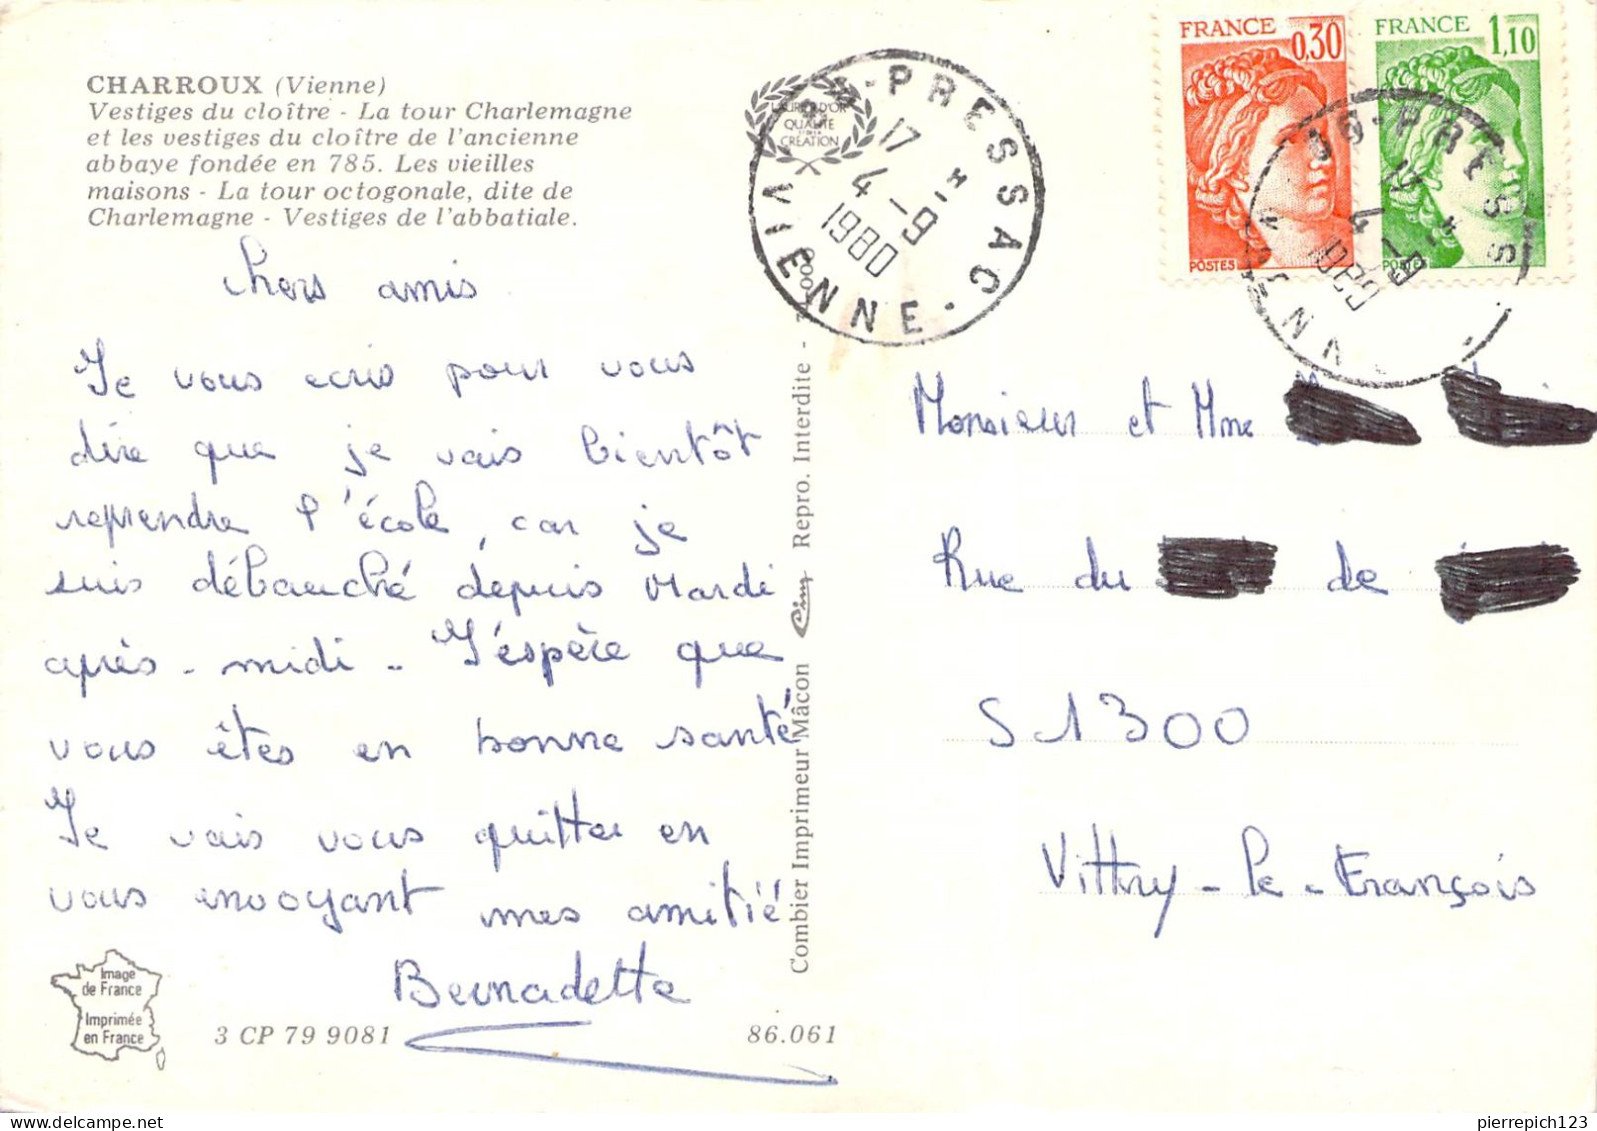 CHARROUX (Vienne)
Vestiges du cloître - La tour Charlemagne
et les vestiges du cloître de l'ancienne
abbaye fondée en 785. Les vieilles
maisons - La tour octogonale, dite de
Charlemagne - Vestiges de l'abbatiale.
Chers amis
Je vous ecris pour vous
dire que je vais bientôt
reprendre l'école, car je
suis débauché depuis Mardi
après-midi - J'éspère que
vous êtes en bonne santé
Je vais vous quitter en
vous envoyant mes amitié
Bernadette
Image
de France
Imprimée
en France
3 CP 79 9081
86.061
Combier Imprimeur Mâcon Cim Repro. Interdite -
QUALITE
CREATION
PRESSAC
VIENNE
17
4-9
1980
FRANCE
0,30
POSTES
FRANCE
1,10
POSTES
PRESS
17
4-9
Monsieur et Mme
Rue du de
51300
Vittry-le-François
pierrepich123